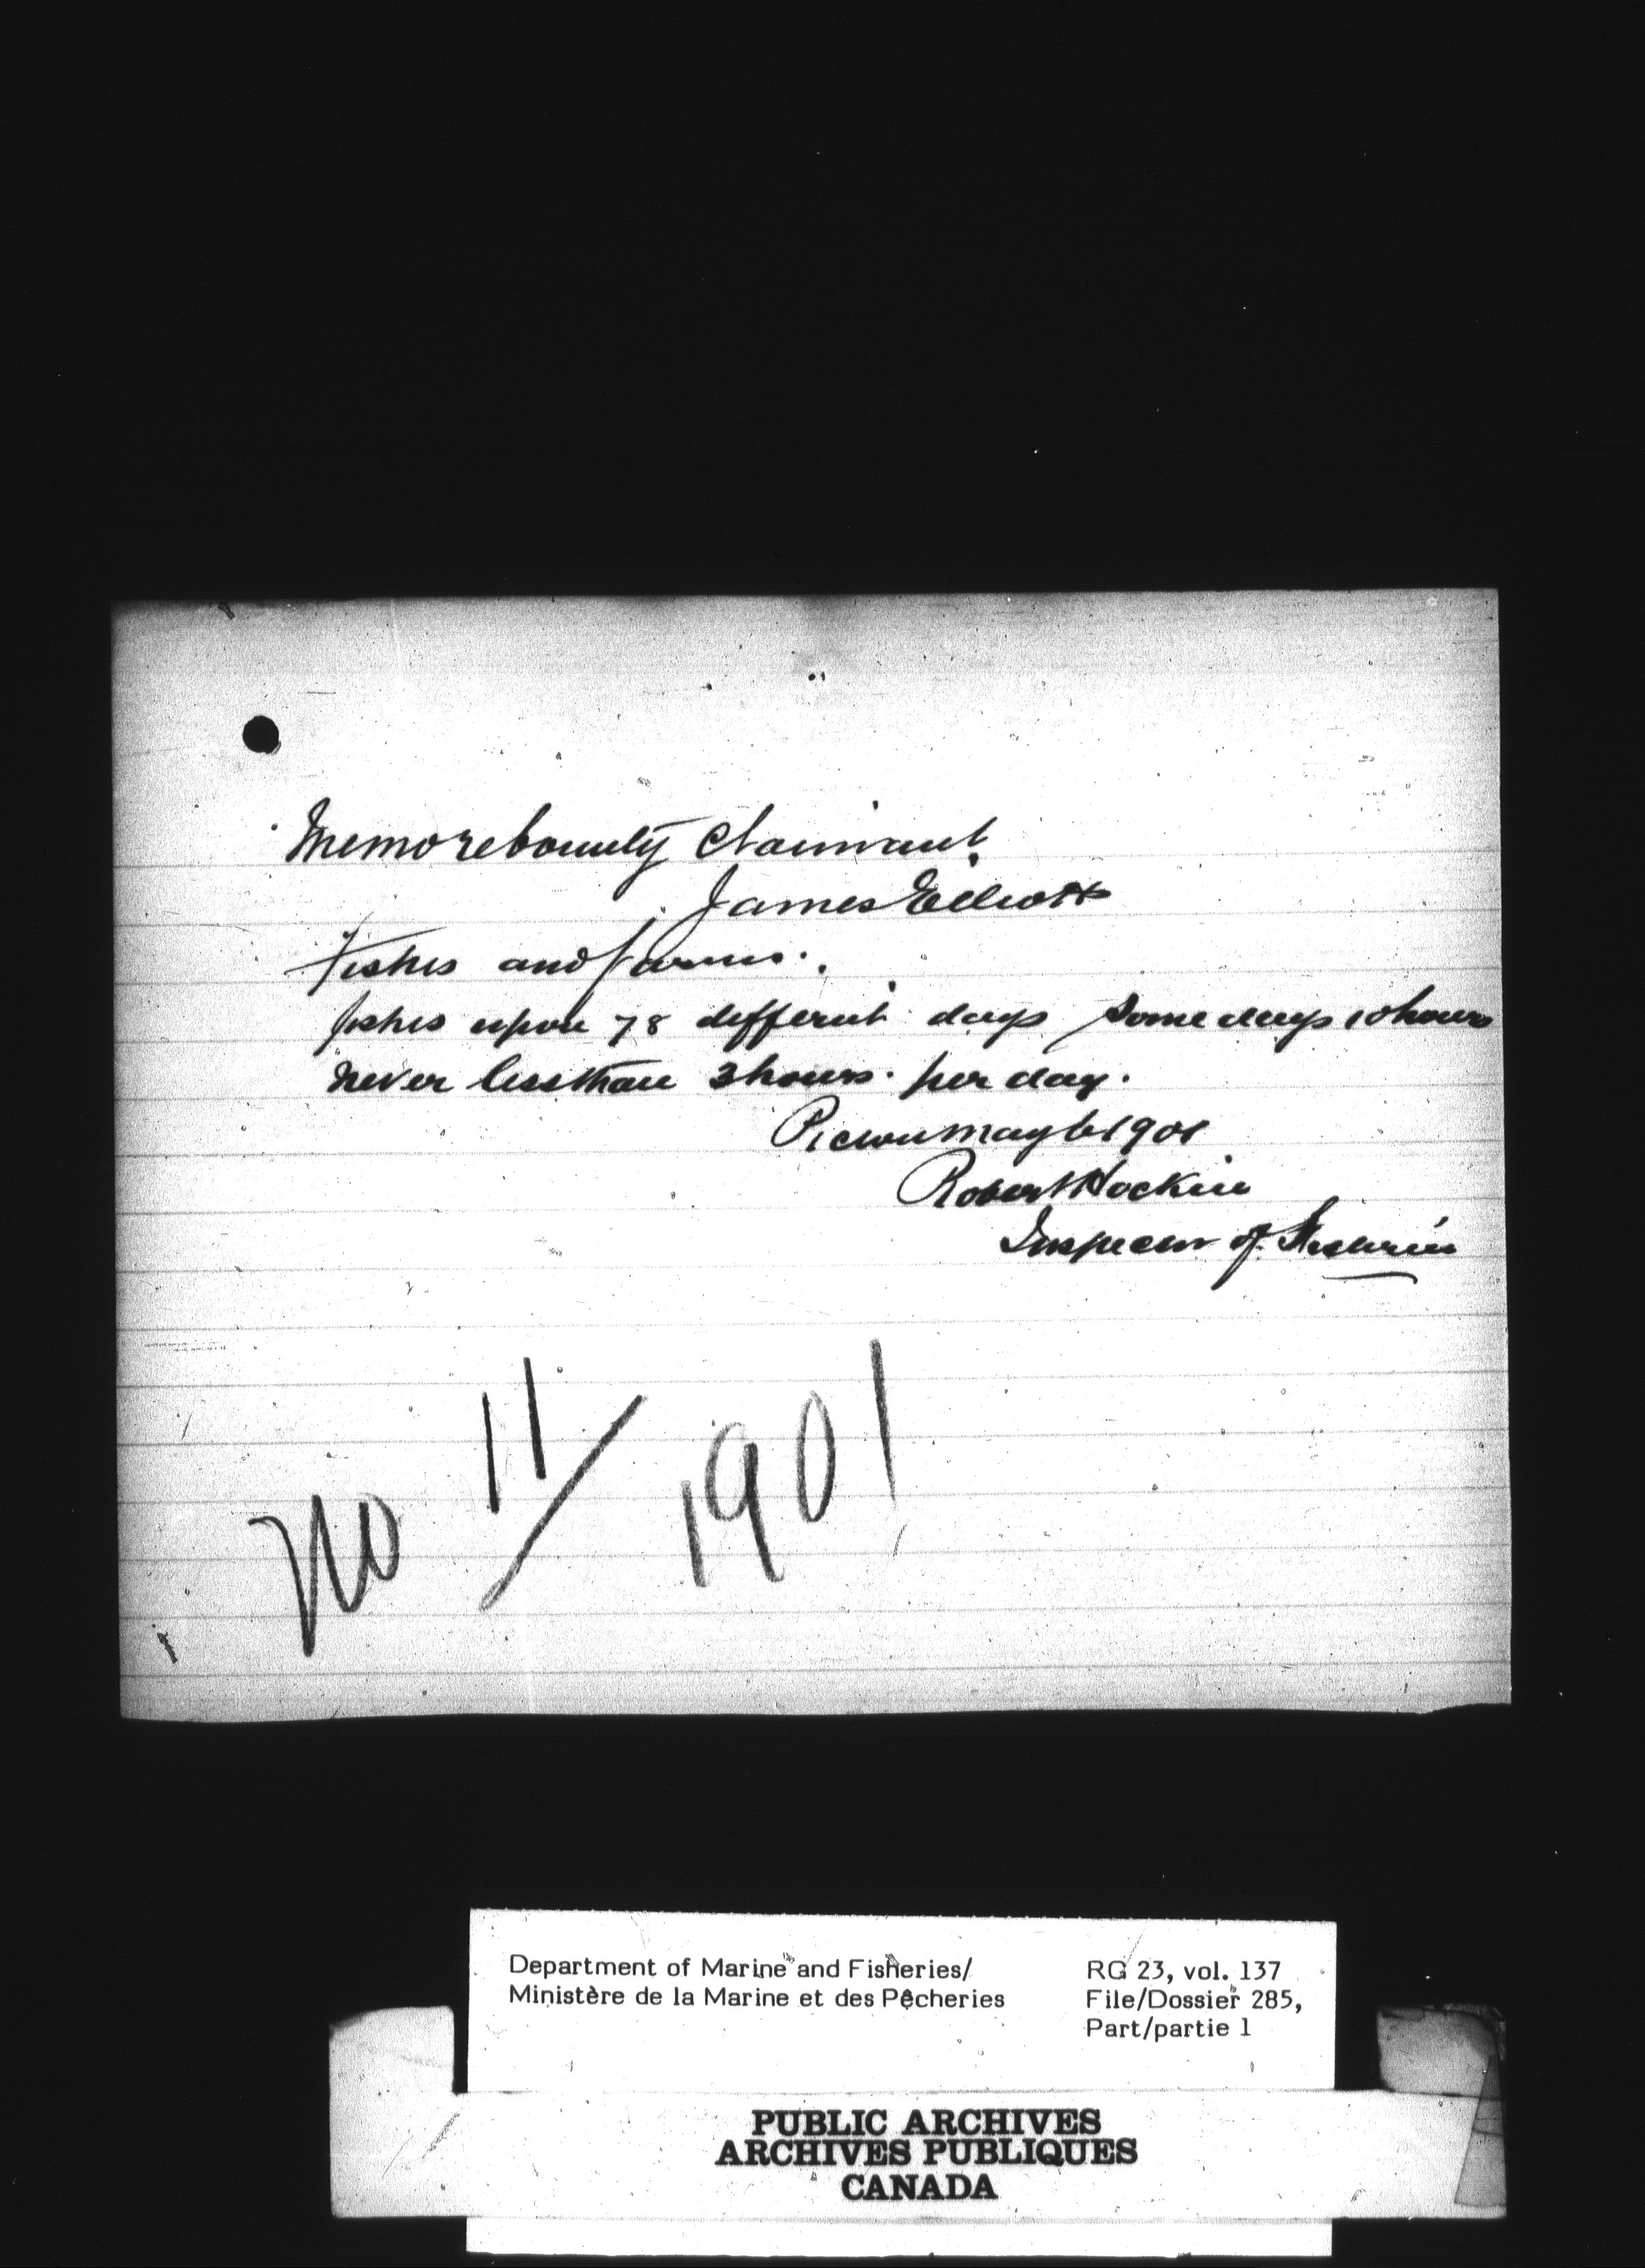 Memo re bounty Claimant.
James Elliott
Fishes and farms.
fishes upon 78 different days some days 10 hours
never less than 3 hours per day.
Pictou May 6 1901
Robert Hockin
Inspector of Fisheries
No 11/1901
Department of Marine and Fisheries/
Ministère de la Marine et des Pêcheries
RG 23, vol. 137
File/Dossier 285,
Part/partie 1
PUBLIC ARCHIVES
ARCHIVES PUBLIQUES
CANADA